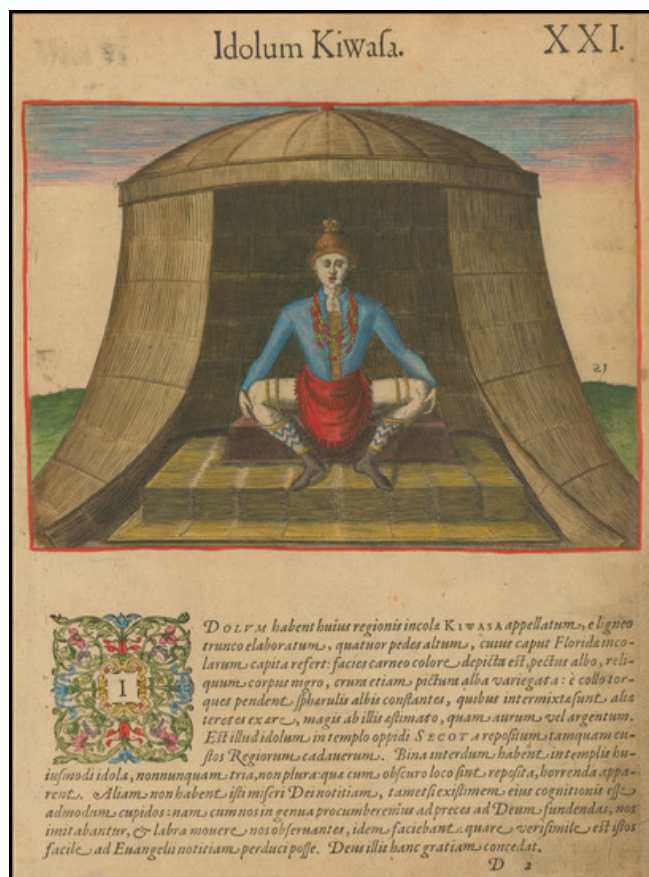 Idolum Kiwaſa.
XXI.
21
IDOLVM habent huius regionis incolæ KIWASA appellatum, e ligneo
trunco elaboratum, quatuor pedes altum, cuius caput Floridæ inco-
larum capita refert: facies carneo colore depicta eſt, pectus albo, reli-
quum corpus nigro, crura etiam pictura alba variegata: è collo tor-
ques pendent ſphærulis albis conſtantes, quibus intermixtæ ſunt aliæ
teretes ex ære, magis ab illis æſtimato, quam aurum vel argentum.
Eſt illud idolum in templo oppidi SECOTA repoſitum tamquam cu-
ſtos Regiorum cadauerum. Bina interdum habent in templis hu-
iuſmodi idola, nonnunquam tria, non plura: quæ cum obſcuro loco ſint repoſita, horrenda appa-
rent. Aliam non habent iſti miſeri Dei notitiam, tametſi exiſtimem eius cognitionis eſſe
admodum cupidos: nam cum nos in genua procumberemus ad preces ad Deum fundendas, nos
imitabantur, & labra mouere nos obſeruantes, idem faciebant: quare veriſimile eſt iſtos
facile ad Euangelii notitiam perduci poſſe. Deus illis hanc gratiam concedat.
D 2